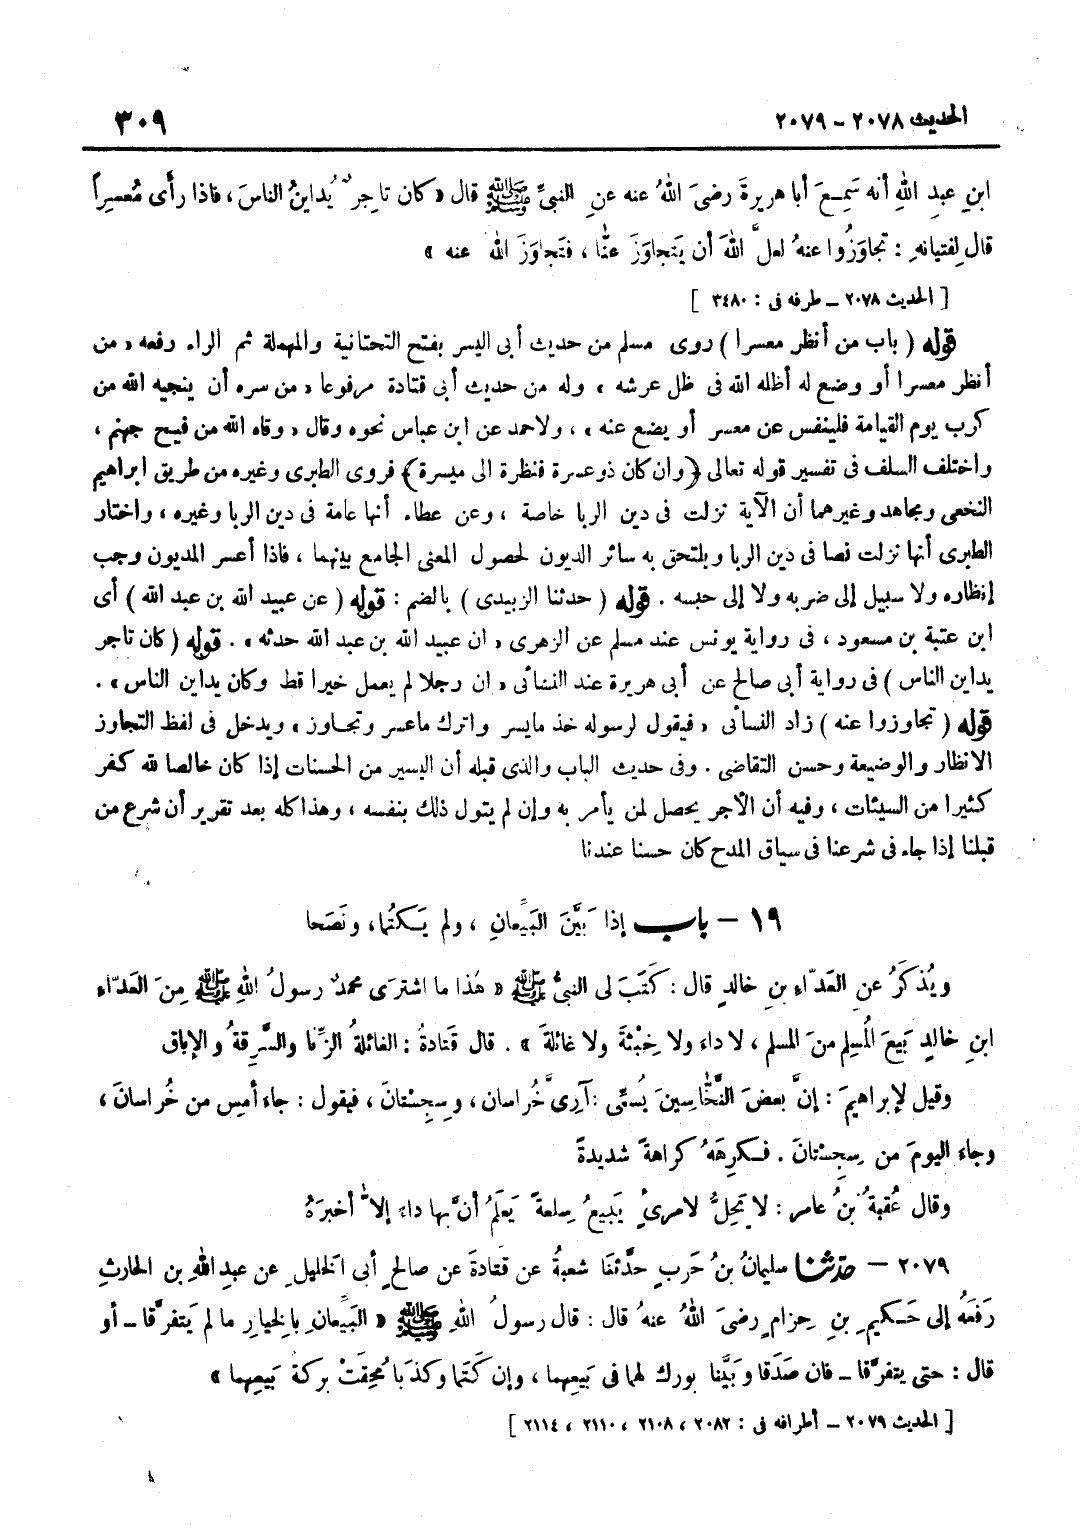 الحديث ٢٠٧٨ – ٢٠٧٩ ٣٠٩
ابنِ عبدِ اللهِ أنه سَمِـعَ أبا هريرةَ رضىَ اللهُ عنه عنِ النبىِّ ﷺ قال « كان تاجرٌ يُداينُ الناسَ، فاذا رأى مُعسِراً
قال لفتيانهِ : تجاوَزُوا عنهُ لعلَّ اللهَ أن يَتجاوَزَ عنَّا ، فتَجاوَزَ اللهُ عنه »
[ الحديث ٢٠٧٨ – طرفه فى : ٣٤٨٠ ]
قوله ( باب من أنظر معسرا ) روى مسلم من حديث أبى اليسر بفتح التحتانية والمهملة ثم الراء رفعه « من
أنظر معسرا أو وضع له أظله الله فى ظل عرشه » وله من حديث أبى قتادة مرفوعا « من سره أن ينجيه الله من
كرب يوم القيامة فلينفس عن معسر أو يضع عنه » ، ولاحمد عن ابن عباس نحوه وقال « وقاه الله من فيح جهنم ،
واختلف السلف فى تفسير قوله تعالى ﴿ وان كان ذو عسرة فنظرة الى ميسرة ﴾ فروى الطبرى وغيره من طريق ابراهيم
النخعى ومجاهد وغيرهما أن الآية نزلت فى دين الربا خاصة ، وعن عطاء أنها عامة فى دين الربا وغيره ، واختار
الطبرى أنها نزلت نصا فى دين الربا ويلتحق به سائر الديون لحصول المعنى الجامع بينهما ، فاذا أعسر المديون وجب
إنظاره ولا سبيل إلى ضربه ولا إلى حبسه . قوله ( حدثنا الزبيدى ) بالضم : قوله ( عن عبيد الله بن عبد الله ) أى
ابن عتبة بن مسعود ، فى رواية يونس عند مسلم عن الزهرى « ان عبيد الله بن عبد الله حدثه » . قوله ( كان تاجر
يداين الناس ) فى رواية أبى صالح عن أبى هريرة عند النسائى « ان رجلا لم يعمل خيرا قط وكان يداين الناس » .
قوله ( تجاوزوا عنه ) زاد النسائى « فيقول لرسوله خذ مايسر واترك ماعسر وتجـاوز » ويدخل فى لفظ التجاوز
الانظار والوضيعة وحسن التقاضى . وفى حديث الباب والذى قبله أن اليسير من الحسنات إذا كان خالصا لله كفر
كثيرا من السيئات ، وفيه أن الأجر يحصل لمن يأمر به وإن لم يتول ذلك بنفسه ، وهذا كله بعد تقرير أن شرع من
قبلنا إذا جاء فى شرعنا فى سياق المدح كان حسنا عندنا
١٩ – باب إذا بَيَّنَ البَيِّعانِ ، ولم يَـكتُما، ونَصَحا
ويُذكَرُ عنِ العَدّاءِ بنِ خالدٍ قال : كَتَبَ لى النبىُّ ﷺ « هٰذا ما اشترَى محمدٌ رسولُ اللهِ ﷺ مِنَ العَدّاءِ
ابنِ خالدٍ بَيعَ المُسلِم منَ المسلم ، لا داءَ ولا خِبْثةَ ولا غائلةَ » . قال قَتادةُ : الغائلةُ الزِّنا والسَّرِقةُ والإباق
وقيل لإبراهيمَ : إنَّ بعضَ النَّخّاسِينَ يُسمِّى : آرِىَّ خُراسان ، وسِجِستانَ ، فيقول : جاء أمسِ من خُراسانَ ،
وجاء اليومَ من سِجِستانَ . فـكرِهَهُ كراهةً شديدةً
وقال عُقبةُ بنُ عامر : لا يَحِلُّ لامرئٍ يَبيعُ سِلعةً يَعلَمُ أنَّ بها داءً إلاَّ أخبرَهُ
٢٠٧٩ – حدّثنا سليمانُ بنُ حَربٍ حدَّثَنا شعبةُ عن قَتادةَ عن صالحٍ أبى الخليلِ عن عبدِ اللهِ بن الحارثِ
رَفَعَهُ إلى حَـكيمِ بنِ حِزامٍ رضىَ اللهُ عنهُ قال : قال رسولُ اللهِ ﷺ « البَيِّعانِ بالخيارِ ما لم يَتفرَّقا – أو
قال : حتى يتفرَّقا – فان صَدَقا وبَيَّنا بورك لهما فى بَيعِهما ، وإن كَتَما وكذَبا مُحِقَتْ بركةُ بَيعِهما »
[ الحديث ٢٠٧٩ – أطرافه فى : ٢٠٨٢ ، ٢١٠٨ ، ٢١١٠ ، ٢١١٤ ]